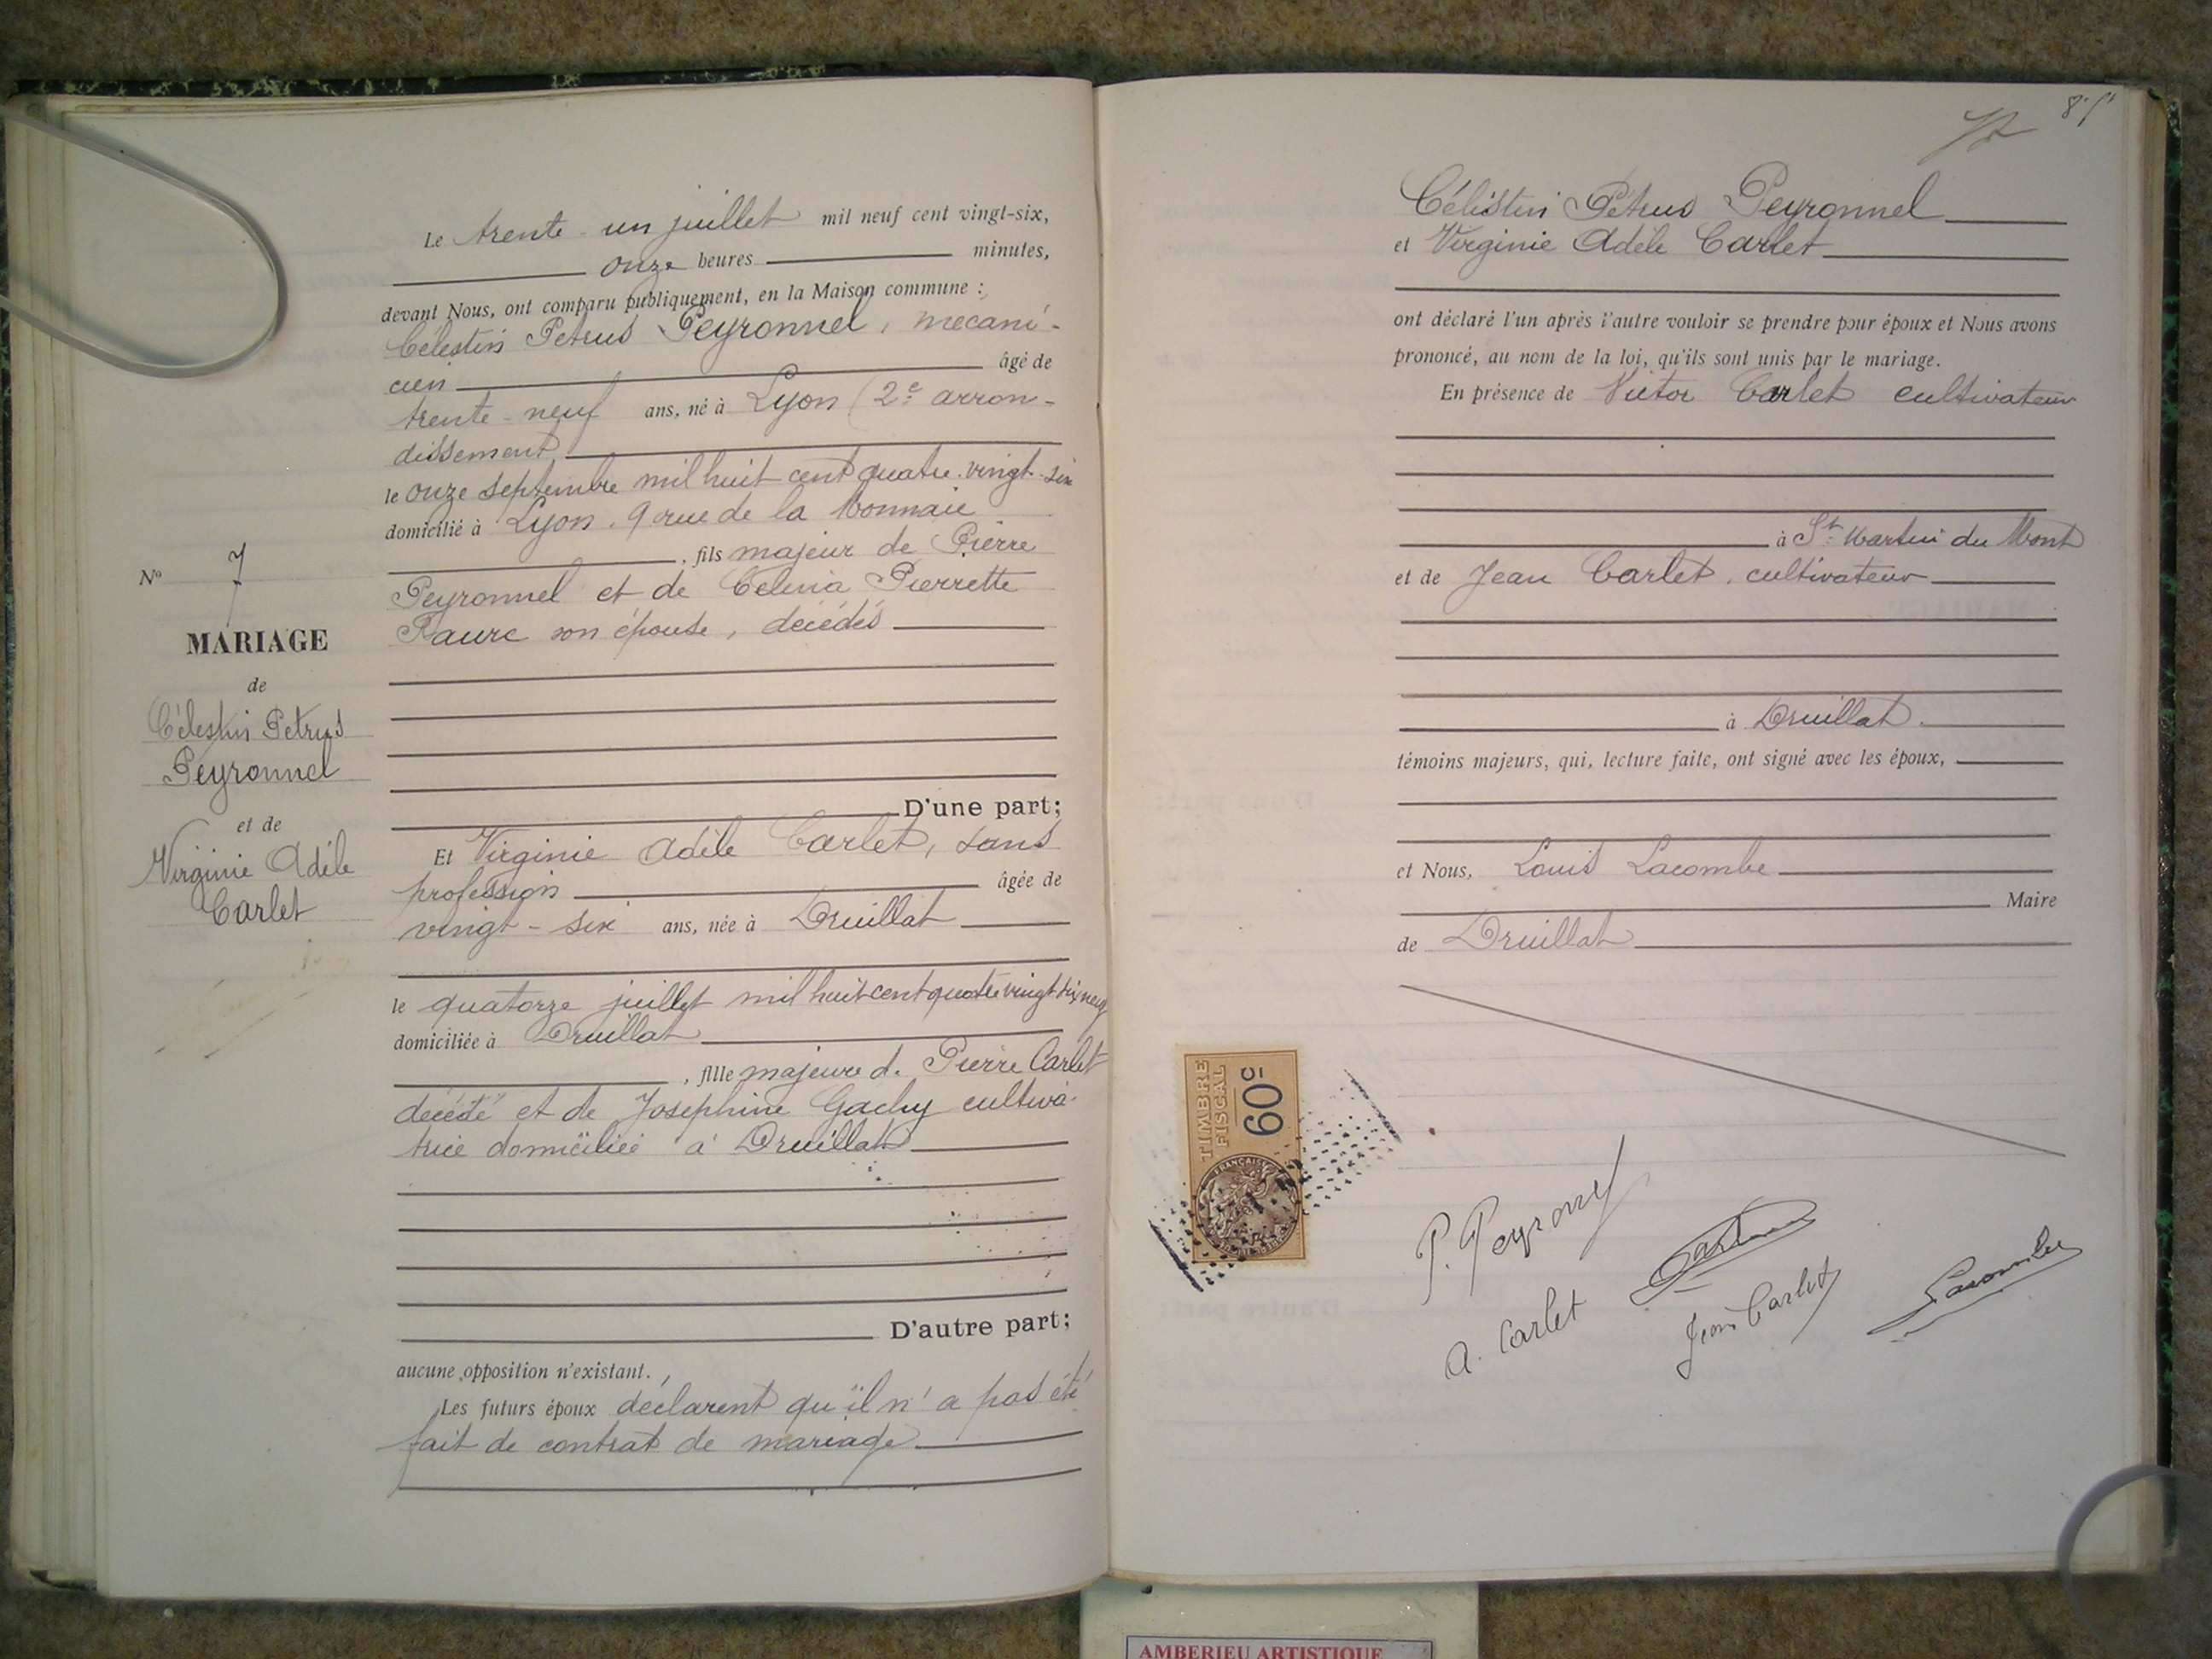 Le trente-un juillet mil neuf cent vingt-six,
onze heures minutes,
devant Nous, ont comparu publiquement, en la Maison commune :
Célestin Petrus Peyronnel, mécani-
cien âgé de
trente-neuf ans, né à Lyon (2e arron-
dissement
le onze septembre mil huit cent quatre-vingt-six
domicilié à Lyon, 9 rue de la Monnaie
, fils majeur de Pierre
Peyronnel et de Celina Pierrette
Faure son épouse, décédés
D'une part;
Et Virginie Adèle Carlet, sans
profession âgée de
vingt-six ans, née à Druillat
le quatorze juillet mil huit cent quatre vingt dix neuf
domiciliée à Druillat
, fille majeure de Pierre Carlet
décédé et de Joséphine Gachy cultiva-
trice domiciliée à Druillat
D'autre part;
aucune opposition n'existant.
Les futurs époux déclarent qu'il n'a pas été
fait de contrat de mariage
No 7
MARIAGE
de
Célestin Petrus
Peyronnel
et de
Virginie Adèle
Carlet
Célestin Petrus Peyronnel
et Virginie Adèle Carlet
ont déclaré l'un après l'autre vouloir se prendre pour époux et Nous avons
prononcé, au nom de la loi, qu'ils sont unis par le mariage.
En présence de Victor Carlet cultivateur
à St-Martin du Mont
et de Jean Carlet, cultivateur
à Druillat.
témoins majeurs, qui, lecture faite, ont signé avec les époux,
et Nous, Louis Lacombe
Maire
de Druillat
TIMBRE
FISCAL
60 c.
P. Peyronnel
A. Carlet
Carlet
Jean Carlet
Lacombe
AMBERIEU ARTISTIQUE